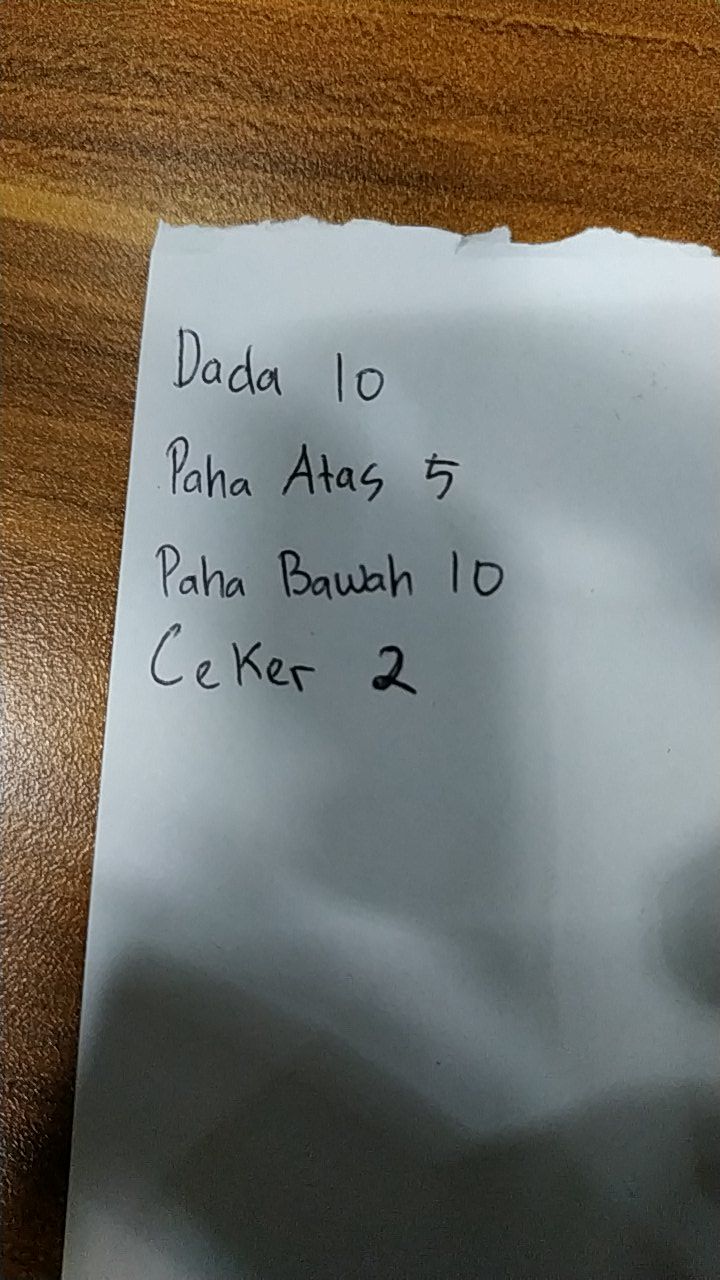 Dada 10
Paha Atas 5
Paha Bawah 10
Ceker 2